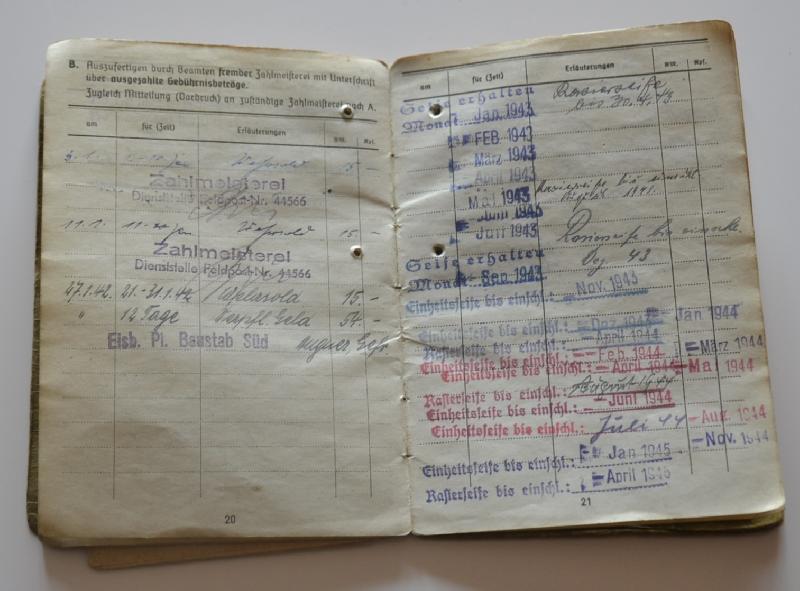 B. Auszufertigen durch Beamten fremder Zahlmeisterei mit Unterschrift
über ausgezahlte Gebührnisbeträge.
Zugleich Mitteilung (Vordruck) an zuständige Zahlmeisterei nach A.
am für (Zeit) Erläuterungen RM. Rpf.
15.-
Zahlmeisterei
Dienststelle Feldpost-Nr. 44566
11.1. 15.-
Zahlmeisterei
Dienststelle Feldpost-Nr. 44566
27.1.42. 21.-31.1.42 Wehrsold 15.-
" 12 Tage Verpfl. Geld 54.-
Eisb. Pi. Baustab Süd
20
am für (Zeit) Erläuterungen RM. Rpf.
Seife erhalten
Monat Jan 1943
FEB 1943
März 1943
April 1943
Mai 1943
Juni 1943
Juli 1943
Rasierseife bis
Dez 43
Seife erhalten
Monat Sep 1943
Einheitsseife bis einschl.: Nov. 1943
Einheitsseife bis einschl.: Dez 1943 Jan 1944
Rasierseife bis einschl.: April 1944
Einheitsseife bis einschl.: Feb. 1944 März 1944
Einheitsseife bis einschl.: April 1944 Mai 1944
Rasierseife bis einschl.: August 1944
Einheitsseife bis einschl.: Juni 1944
Einheitsseife bis einschl.: Juli 44 Aug. 1944
Nov. 1944
Einheitsseife bis einschl.: Jan 1945
Rasierseife bis einschl.: April 1945
21